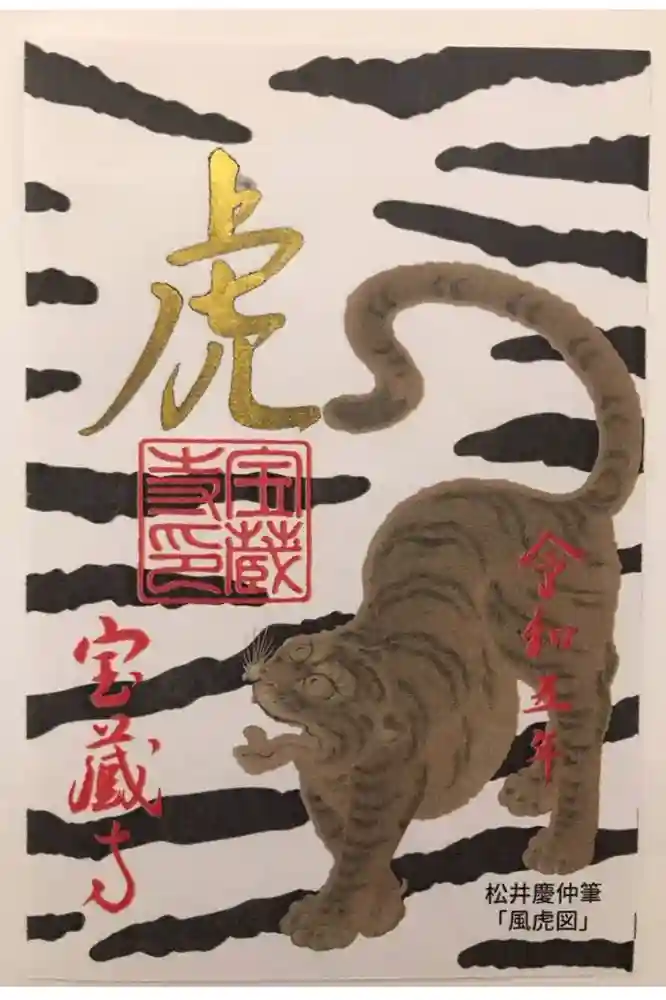 虎
宝蔵
寺印
宝蔵寺
令和五年
松井慶仲筆
「風虎図」